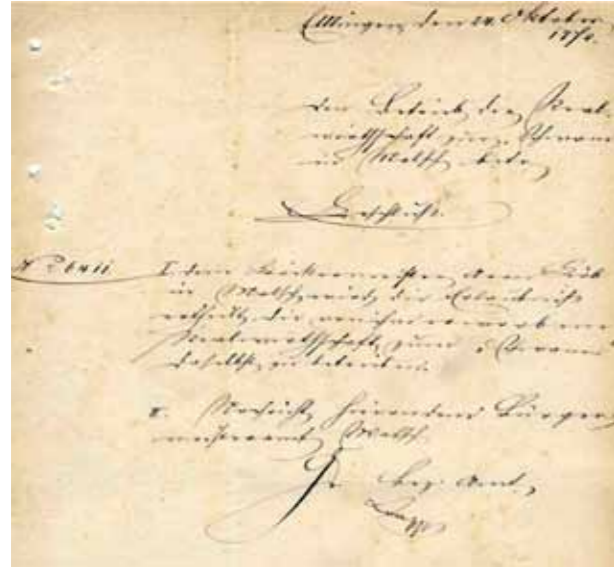 Ettlingen, den 24. Oktober
Den Betrieb der Real-
wirthschaft zum Schwanen
in Malsch betr.
Beschluß.
N° 26411 I. dem
in Malsch wird die Erlaubniß
ertheilt, die von ihm erworbene
Realwirthschaft zum Schwanen
daselbst zu betreiben.
II. Nachricht hievon dem Bürger
meisteramt Malsch.
Gr. Bez. Amt.